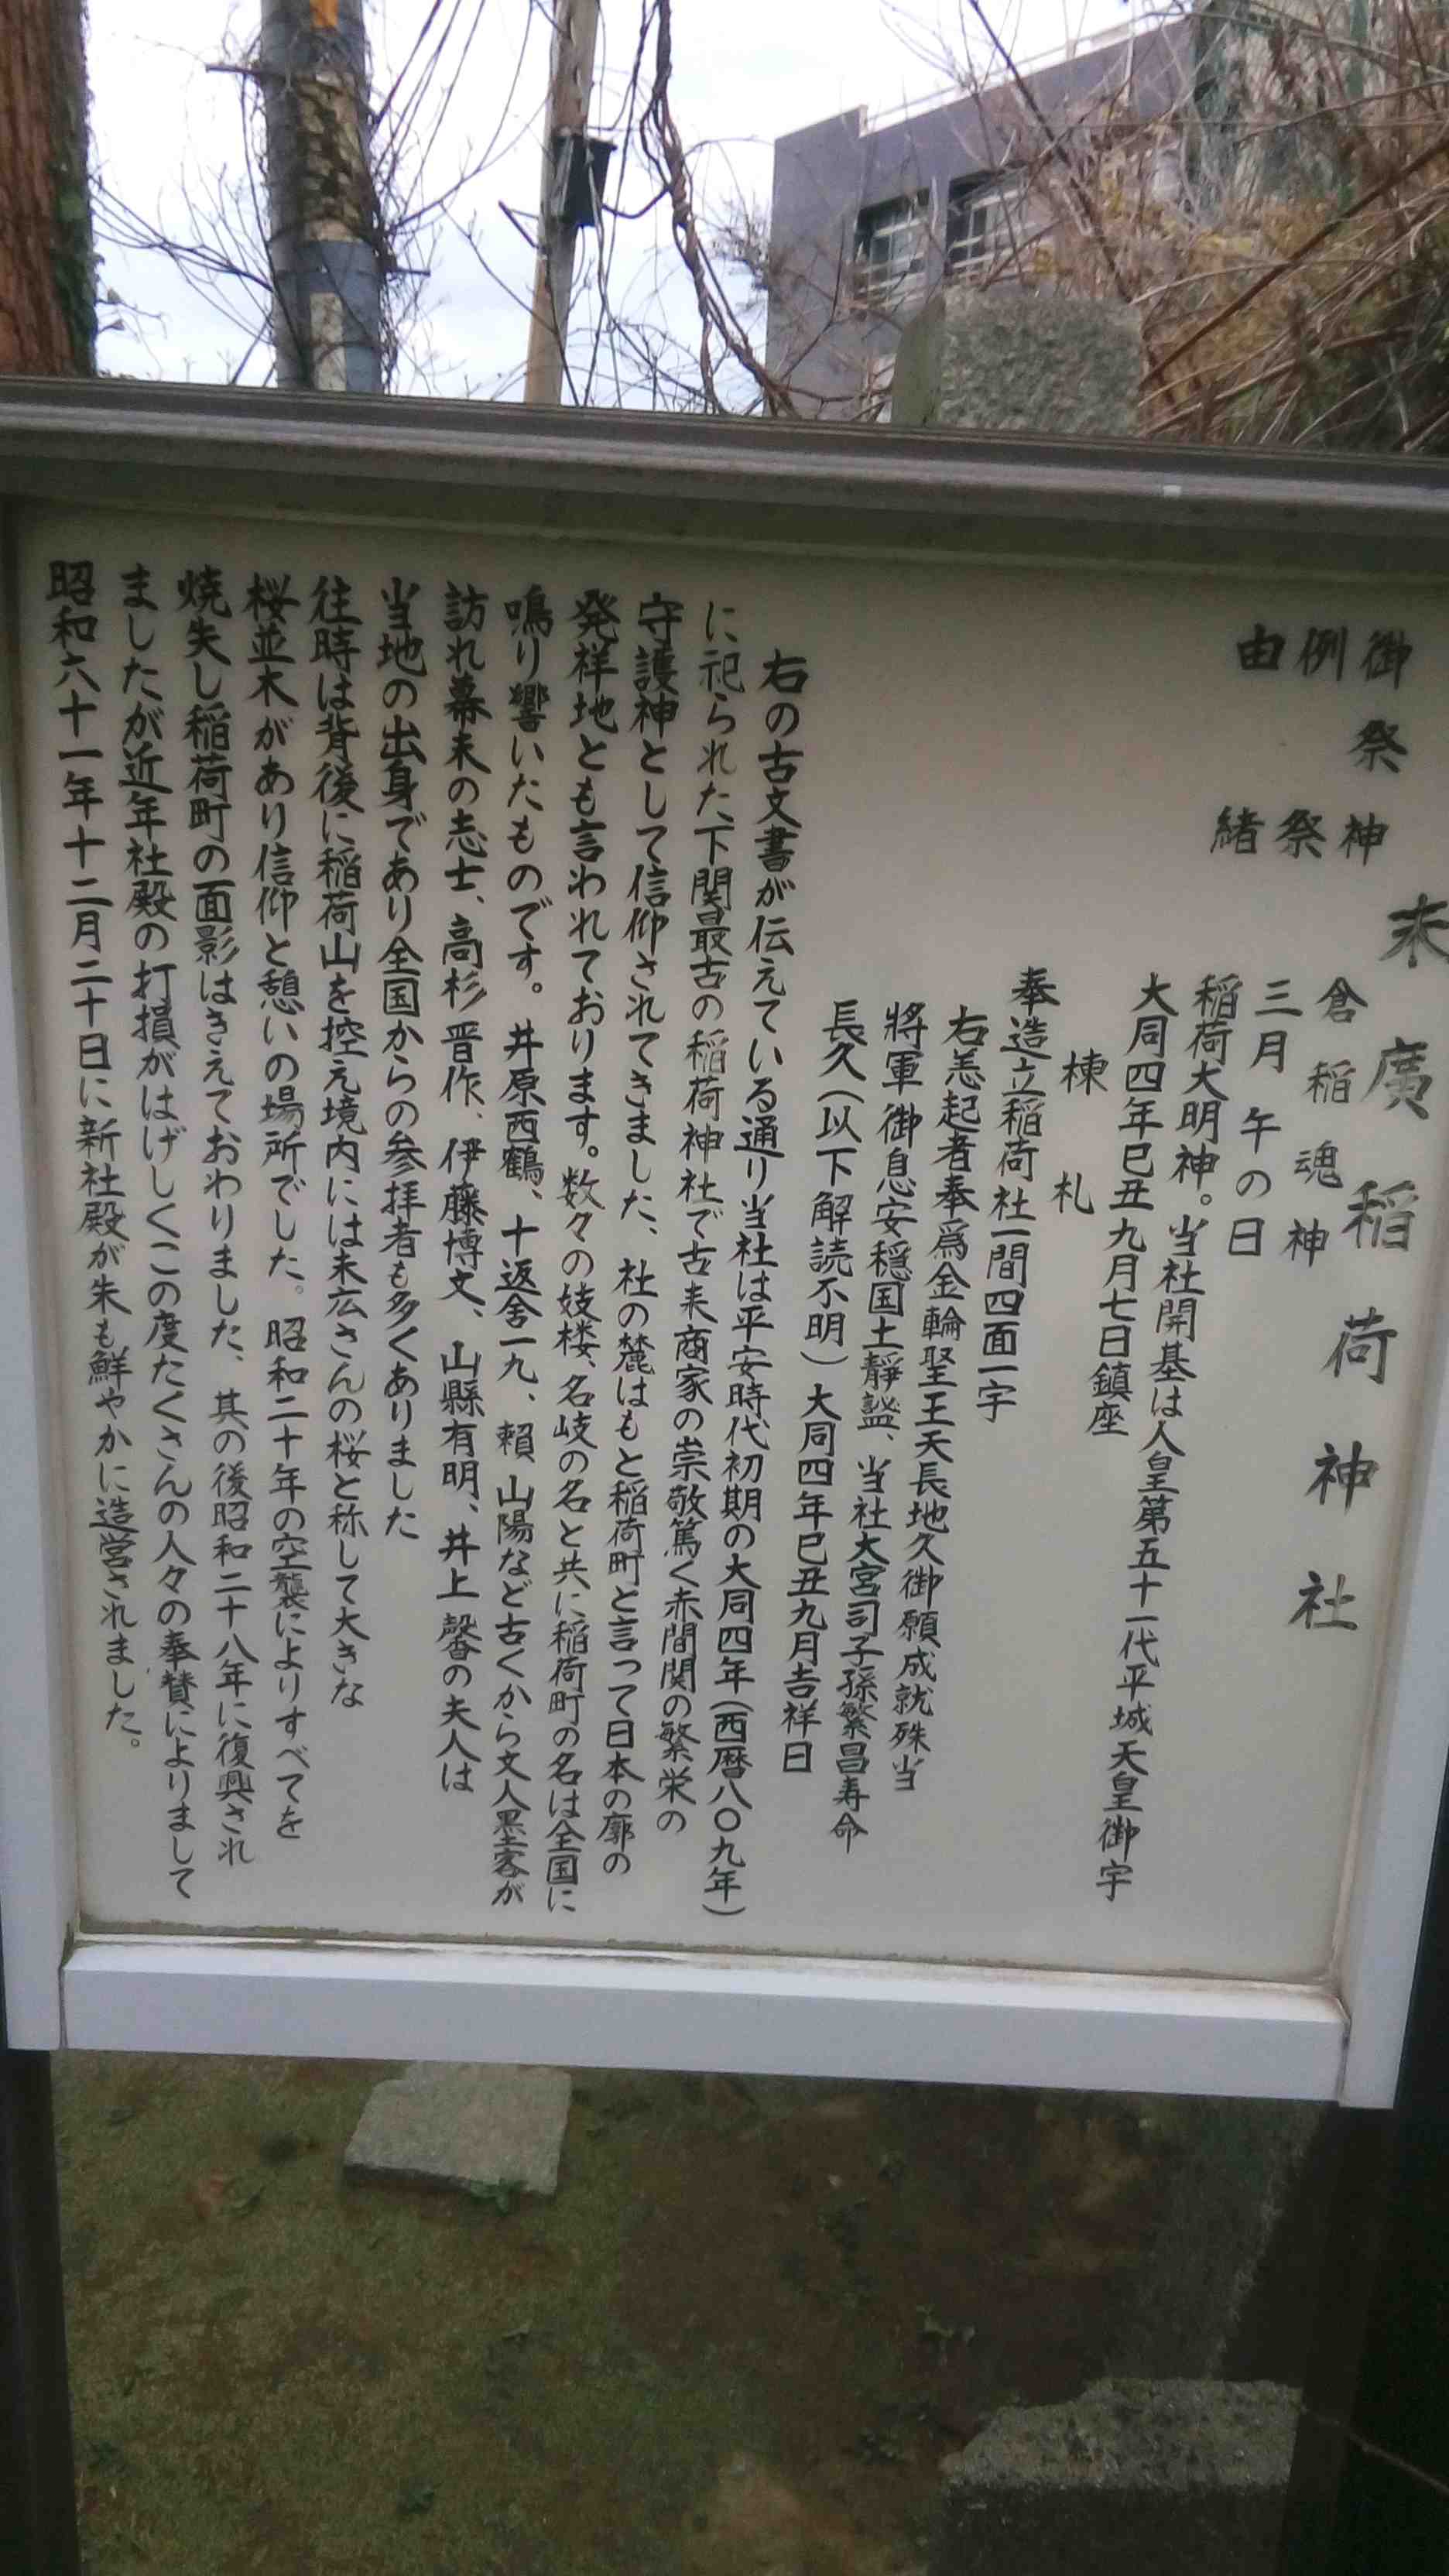 末廣稲荷神社
御祭神　倉稲魂神
例祭　三月午の日
由緒　稲荷大明神。当社開基は人皇第五十一代平城天皇御宇
大同四年巳丑九月七日鎮座
棟札
奉造立稲荷社一間四面一宇
右恙起者奉爲金輪聖王天長地久御願成就殊当
將軍御息安穏国土靜謐、当社大宮司子孫繁昌寿命
長久（以下解読不明）大同四年巳丑九月吉祥日
右の古文書が伝えている通り当社は平安時代初期の大同四年（西暦八〇九年）
に祀られた下関最古の稲荷神社で古来商家の崇敬篤く赤間関の繁栄の
守護神として信仰されてきました、社の麓はもと稲荷町と言って日本の廓の
発祥地とも言われております。数々の妓楼、名岐の名と共に稲荷町の名は全国に
鳴り響いたものです。井原西鶴、十返舎一九、賴山陽など古くから文人墨客が
訪れ幕末の志士、高杉晋作、伊藤博文、山縣有明、井上馨の夫人は
当地の出身であり全国からの参拝者も多くありました
往時は背後に稲荷山を控え境内には末広さんの桜と称して大きな
桜並木があり信仰と憩いの場所でした。昭和二十年の空襲によりすべてを
焼失し稲荷町の面影はきえておわりました、其の後昭和二十八年に復興され
ましたが近年社殿の打損がはげしくこの度たくさんの人々の奉賛によりまして
昭和六十一年十二月二十日に新社殿が朱も鮮やかに造営されました。